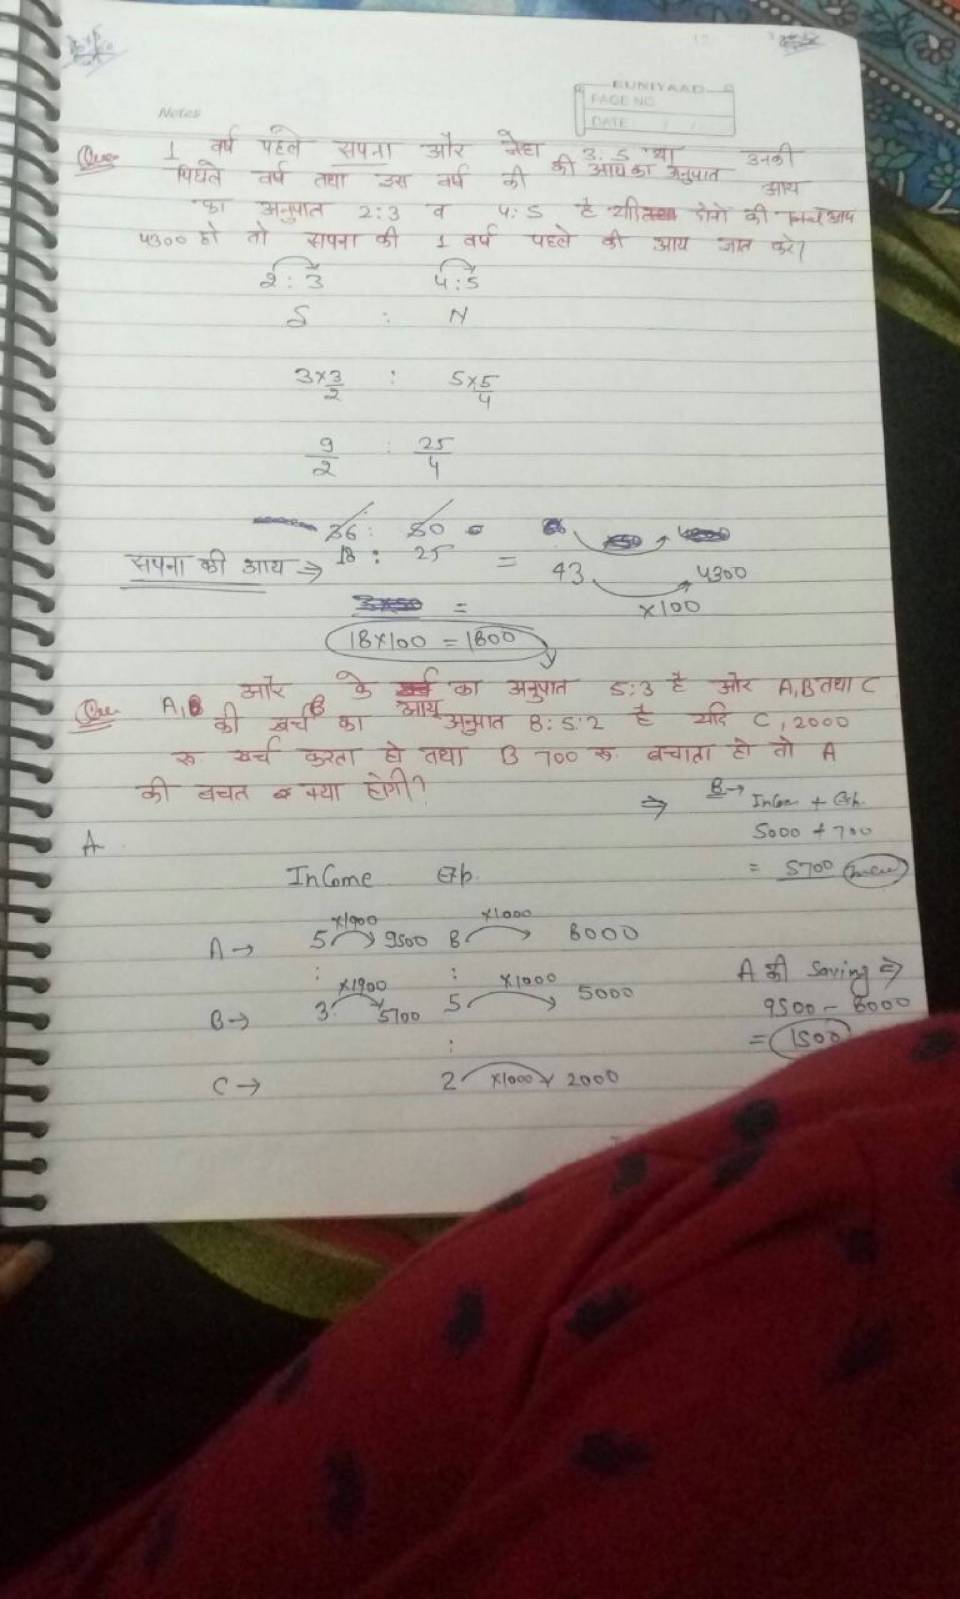 Notes
BUNIYAAD
PAGE NO.
DATE
Que 1 वर्ष पहले सपना और नेहा की आय का अनुपात 3:5 था उनकी
पिछले वर्ष तथा इस वर्ष की आय
का अनुपात 2:3 व 4:5 है दोनो की आय
4300 हो तो सपना की 1 वर्ष पहले की आय ज्ञात करे?
2:3 4:5
S : N
3×3/2 : 5×5/4
9/2 : 25/4
36 : 50
सपना की आय ⇒ 18 : 25 = 43 4300
×100
=
18×100 = 1800
Que A,B और B के आय का अनुपात 5:3 है और A,B तथा C
की खर्च का अनुपात 8:5:2 है यदि C, 2000
रू खर्च करता हो तथा B 700 रू बचाता हो तो A
की बचत क्या होगी?
⇒ B→ InCome + Exp.
A 5000 + 700
InCome Exp. = 5700
A→ 5 ×1900 9500 8 ×1000 8000
: : A की Saving ⇒
B→ 3 ×1900 5700 5 ×1000 5000 9500 - 8000
: = 1500
C→ 2 ×1000 2000